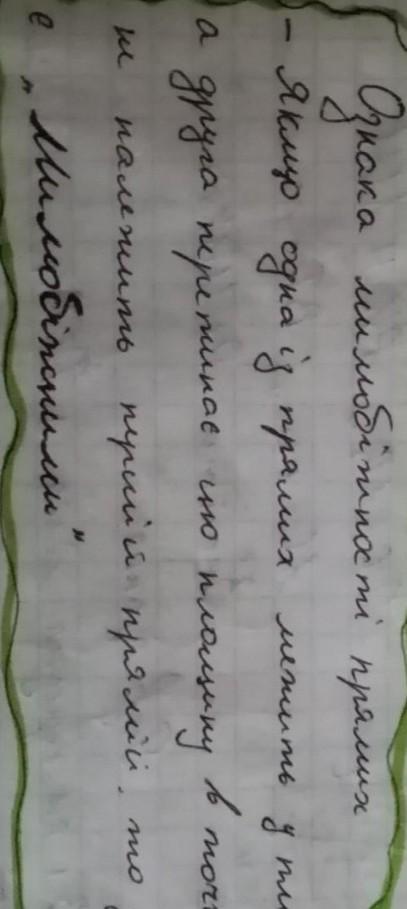 Ознака мимобіжності прямих
- Якщо одна із прямих лежить у пл
а друга перетинає цю площину в точ
не належить першій прямій, то
є „Мимобіжними"